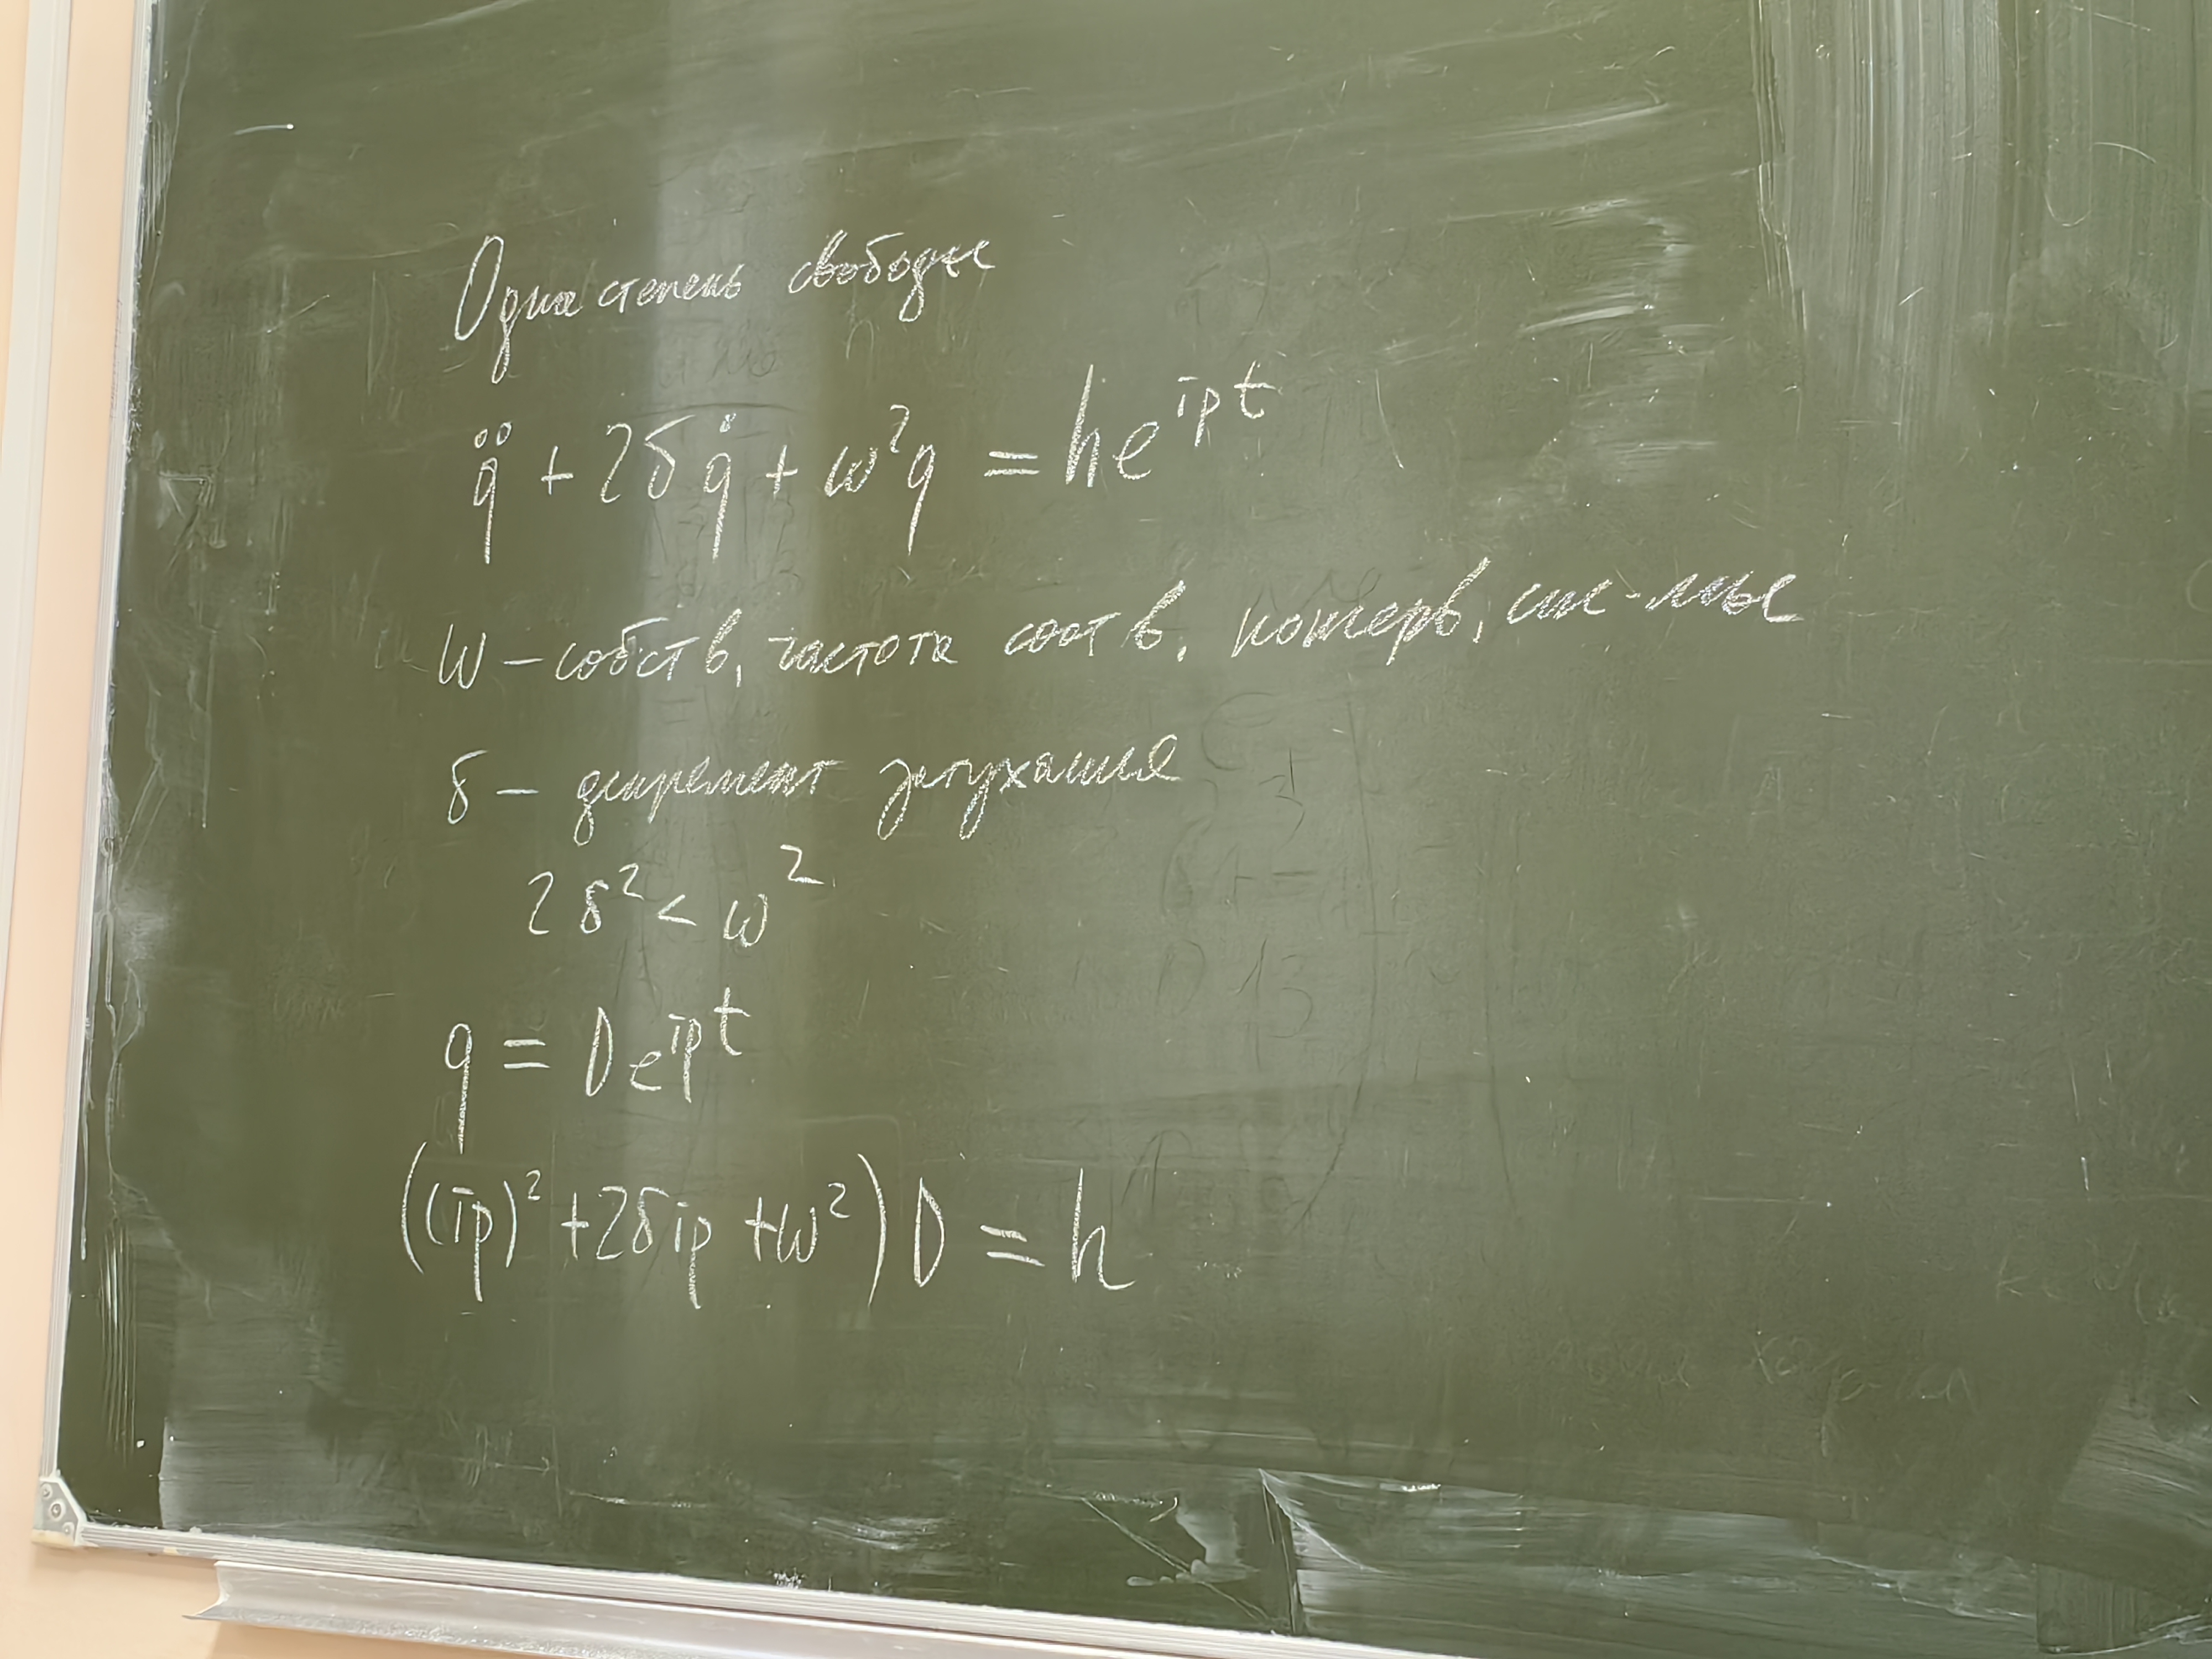 Одна степень свободы
q̈ + 2δq̇ + ω²q = he^{ipt}
ω – собств. частота соотв. консерв. сис-мы
δ – декремент затухания
2δ² < ω²
q = De^{ipt}
((ip)² + 2δip + ω²)D = h